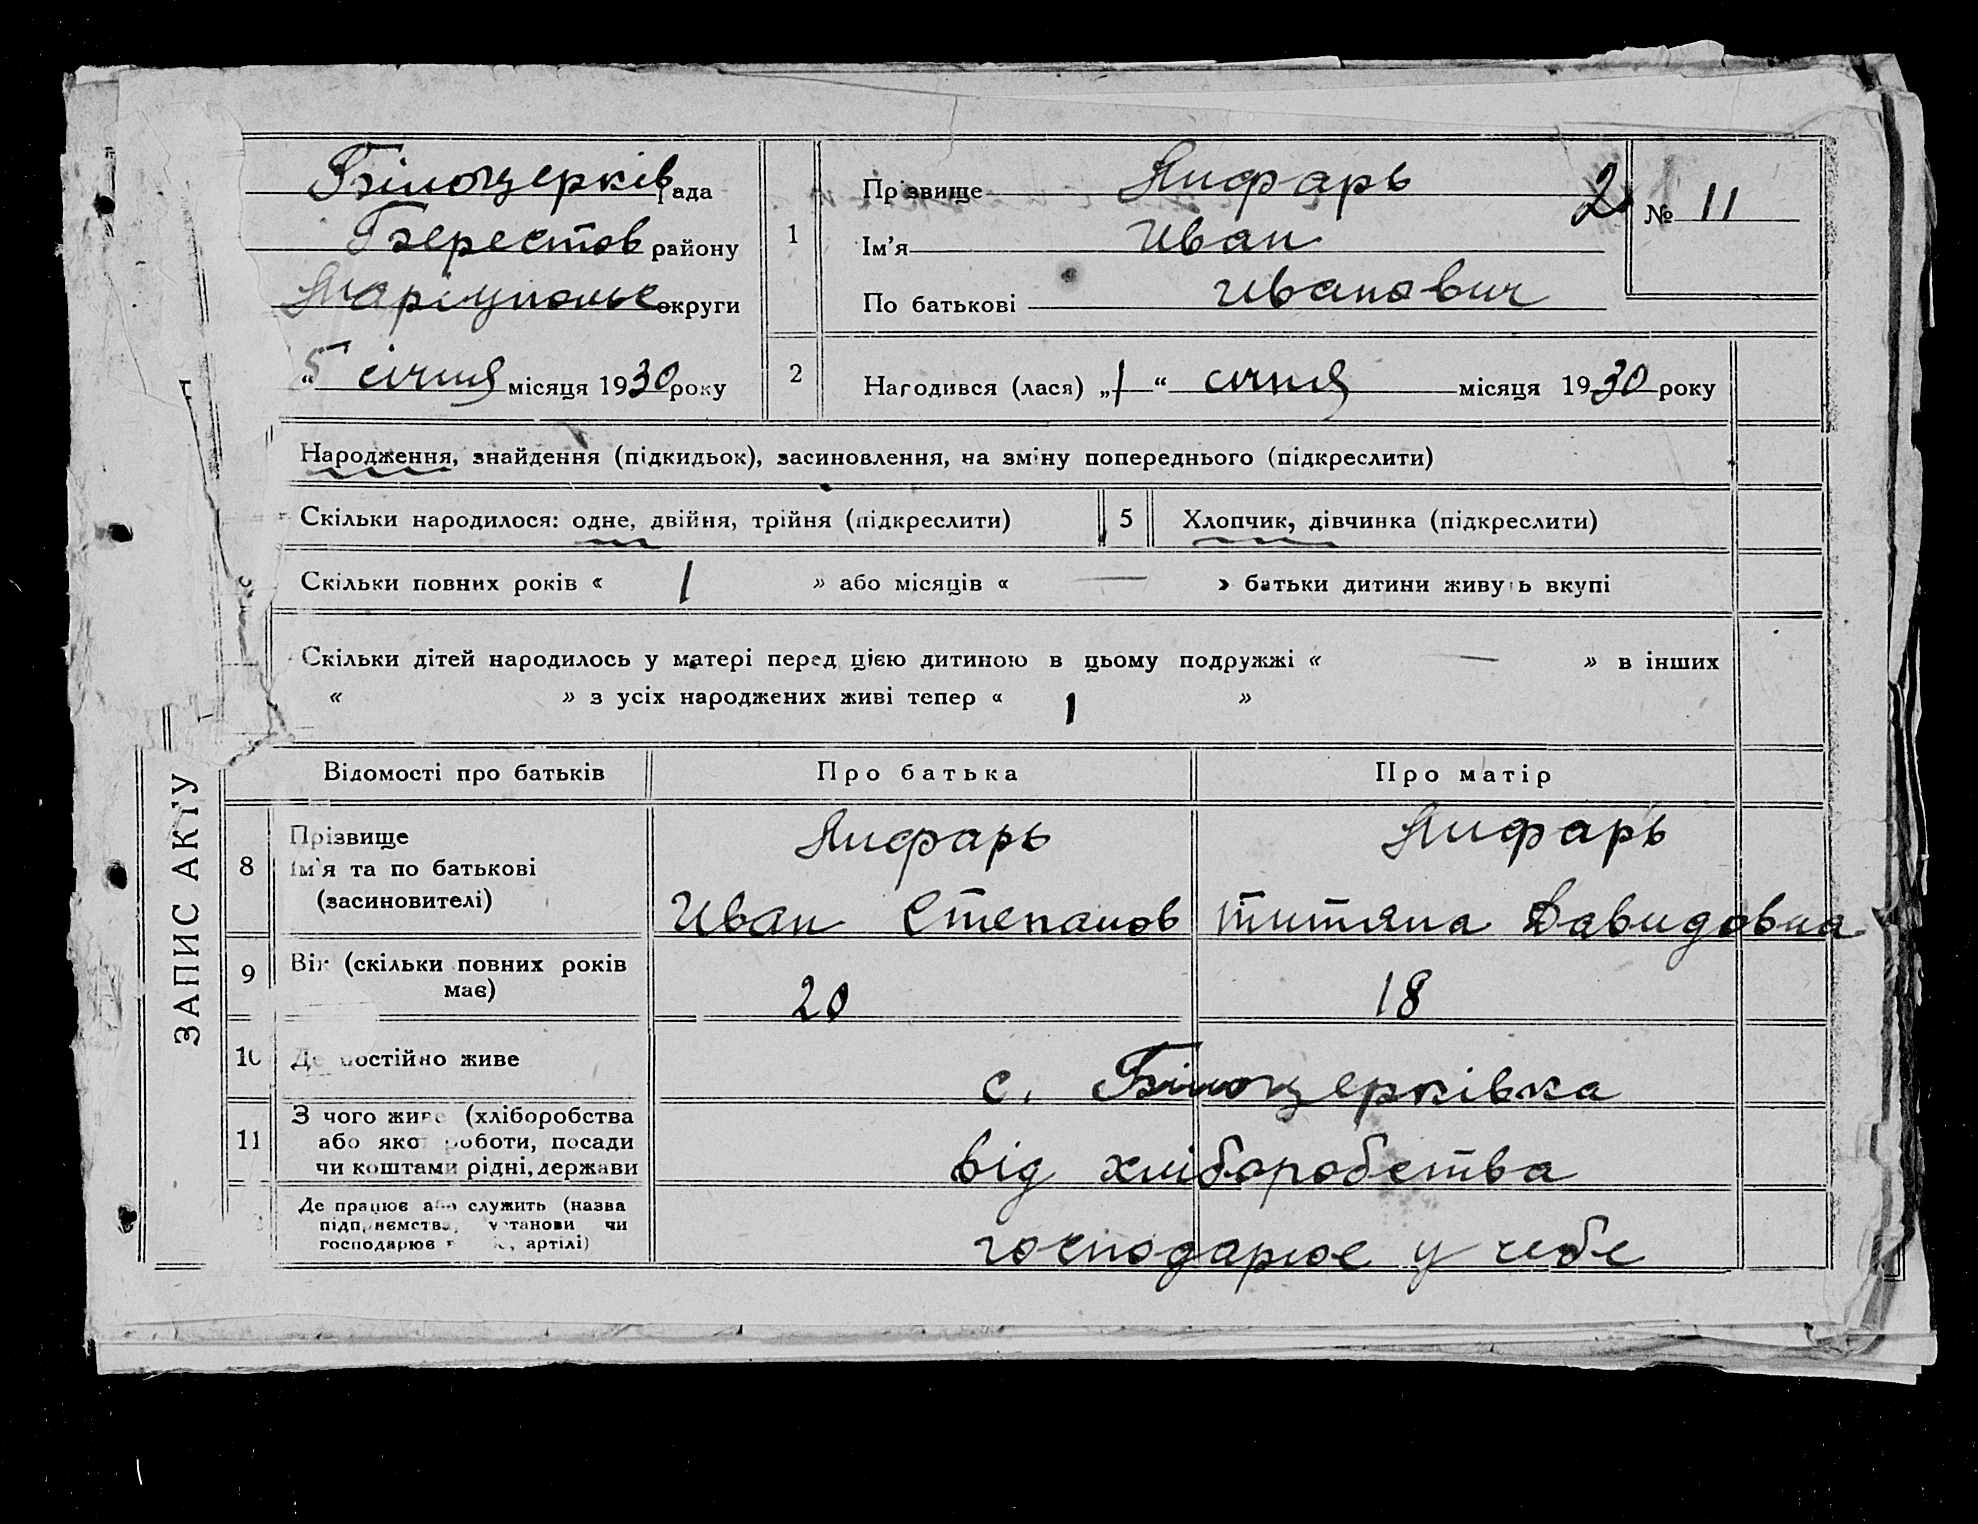 Білоцерків рада
Берестов району
Маріупольс округи
5 " січня місяця 1930 року
1
Прізвище Лифарь
Ім'я Иван
По батькові Иванович
2
№ 11
2 Народився (лася) „1" січня місяця 1930 року
Народження, знайдення (підкидьок), засиновлення, на зміну попереднього (підкреслити)
Скільки народилося: одне, двійня, трійня (підкреслити) 5 Хлопчик, дівчинка (підкреслити)
Скільки повних років « 1 » або місяців « — » батьки дитини живуть вкупі
Скільки дітей народилось у матері перед цією дитиною в цьому подружжі « — » в інших
« » з усіх народжених живі тепер « 1 »
ЗАПИС АКТУ
Відомості про батьків Про батька Про матір
8 Прізвище Лифарь Лифарь
Ім'я та по батькові
(засиновителі) Иван Степанов Титяна Давидовна
9 Вік (скільки повних років
має) 20 18
10 Де постійно живе с. Білоцерківка
11 З чого живе (хліборобства
або якої роботи, посади
чи коштами рідні, держави від хліборобства
Де працює або служить (назва
підприємства, установи чи
господарює в , артілі) господарює у себе